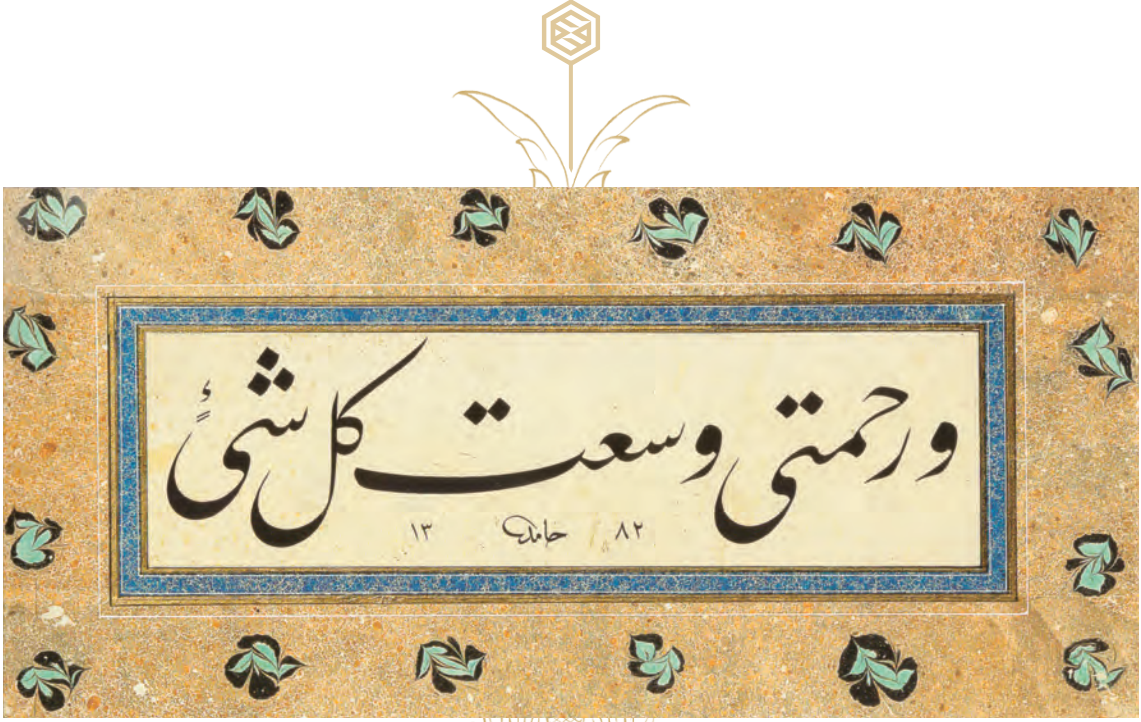 ورحمتی وسعت کل شیءٍ
١٣ حامد ٨٢